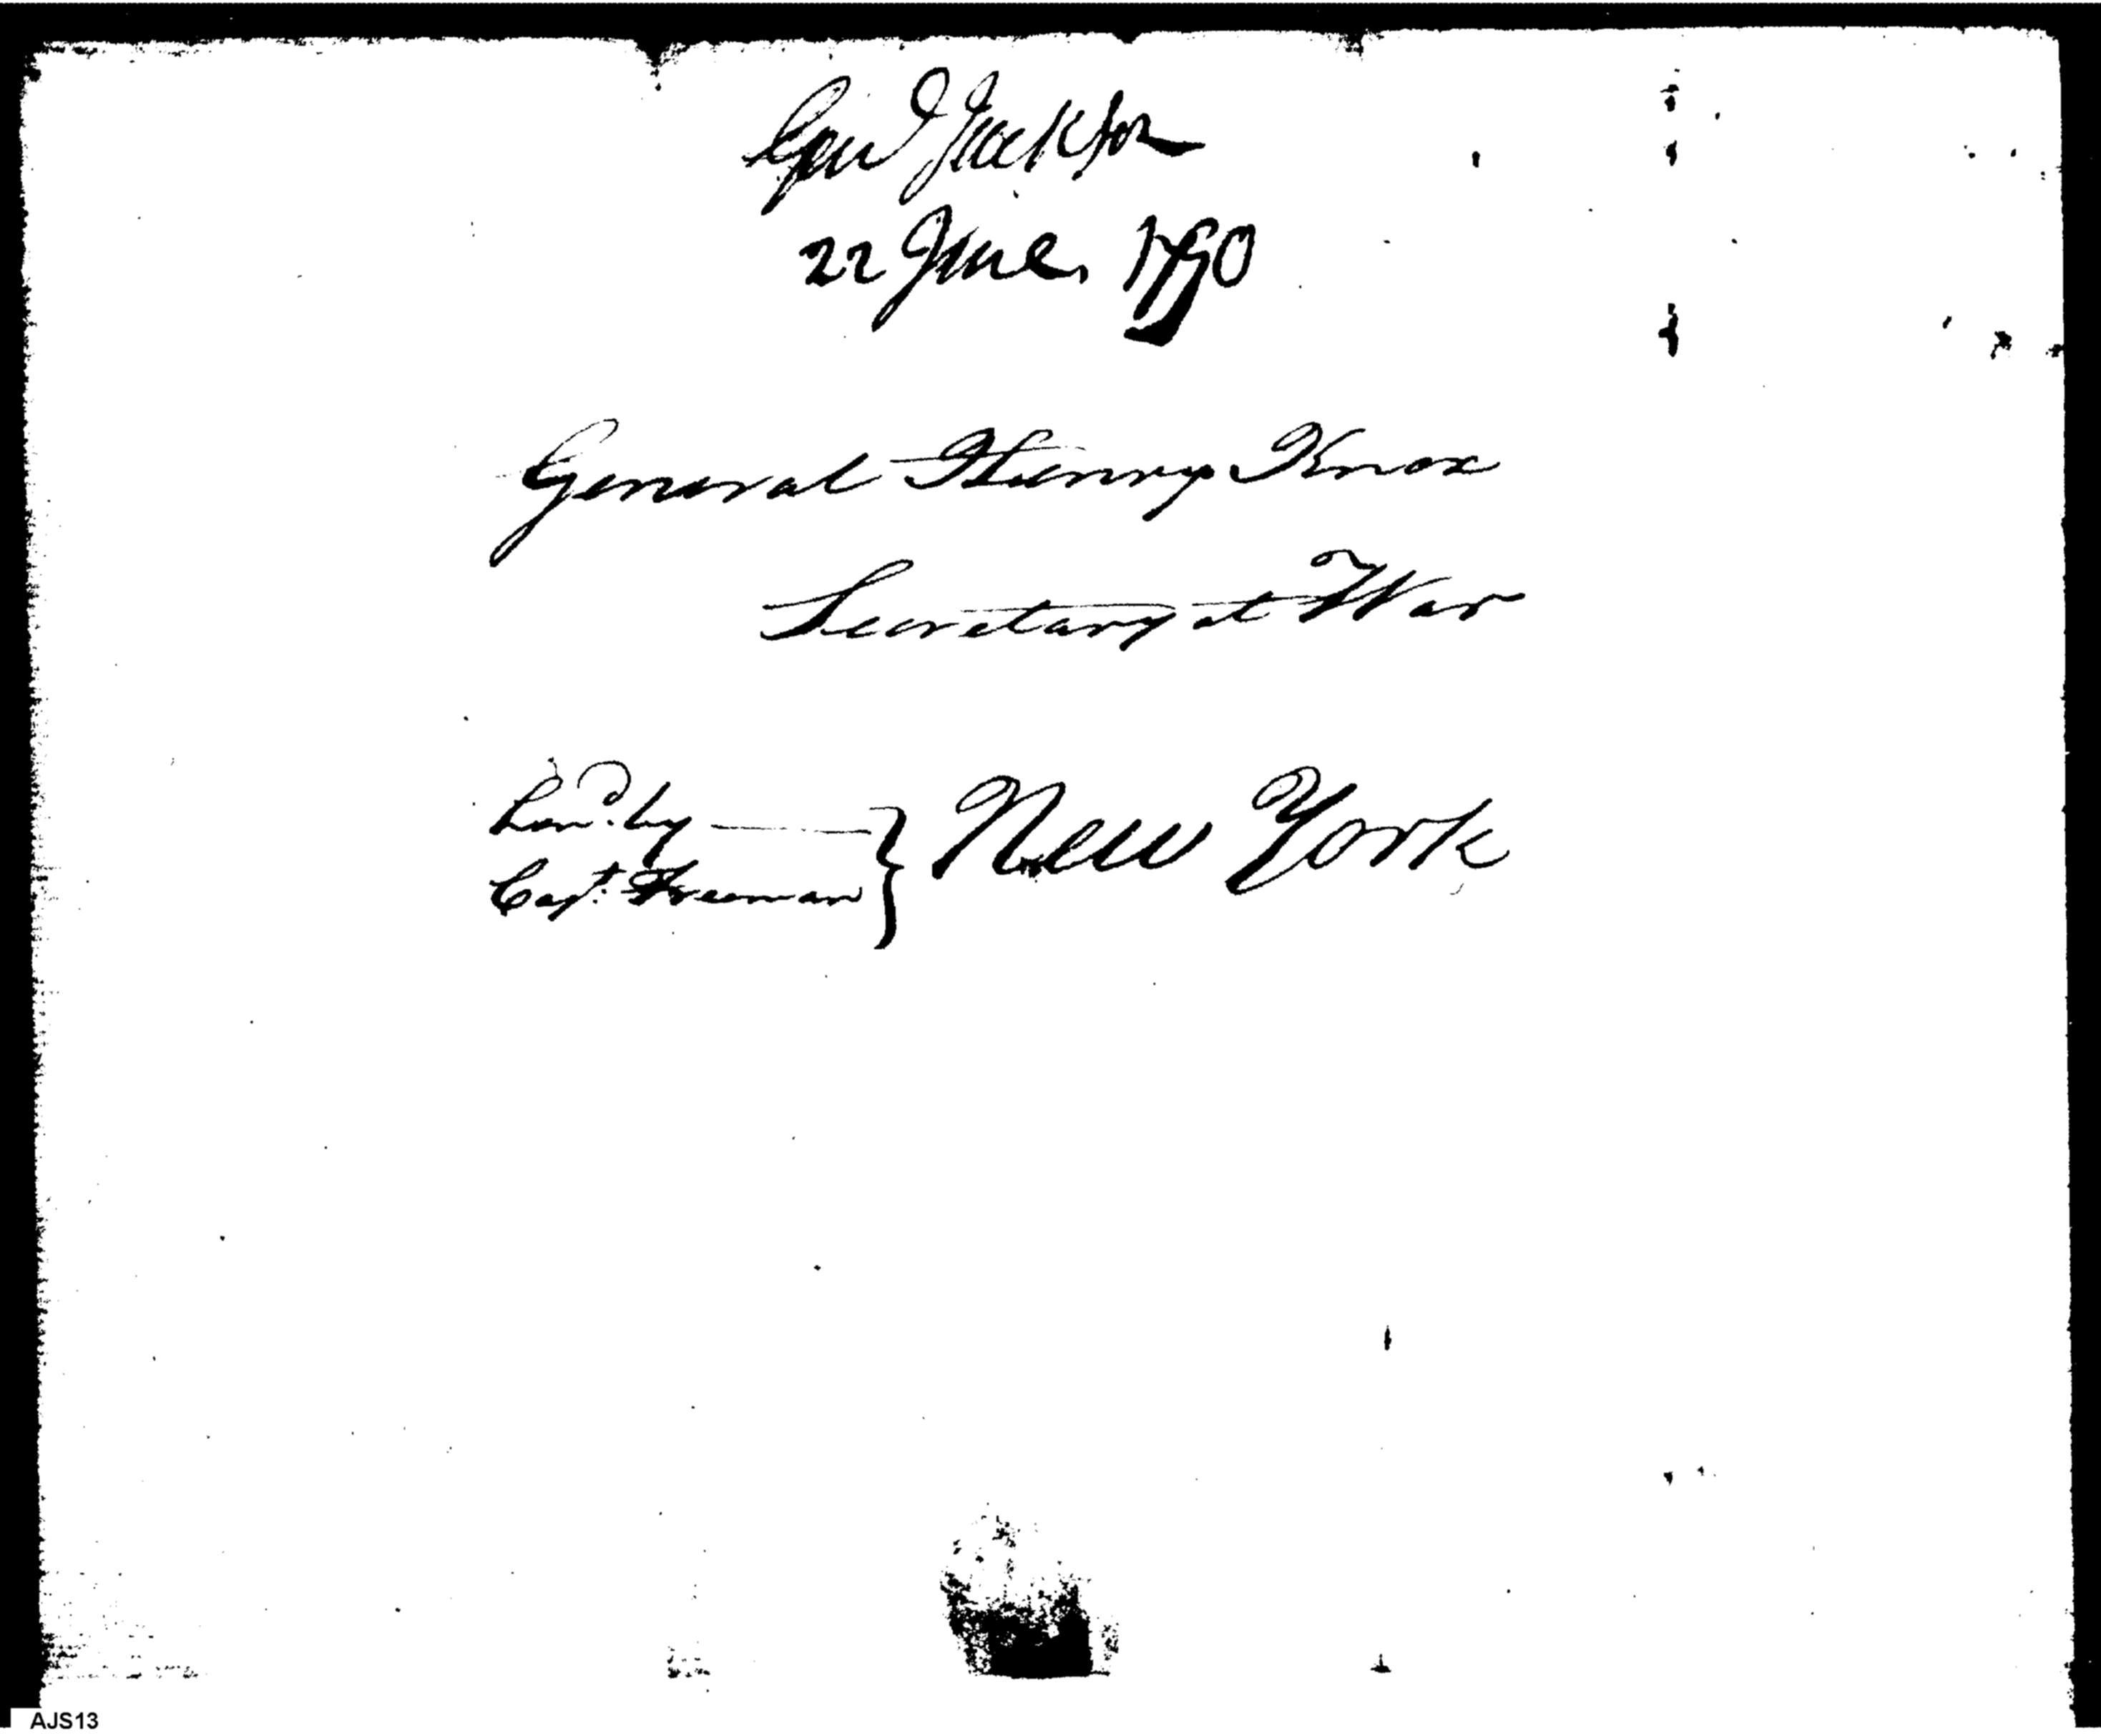 Genl Jackson
22 June, 1790
General Henry Knox
Secretary at War
Hond. by
Capt. Freeman } New York
AJS13